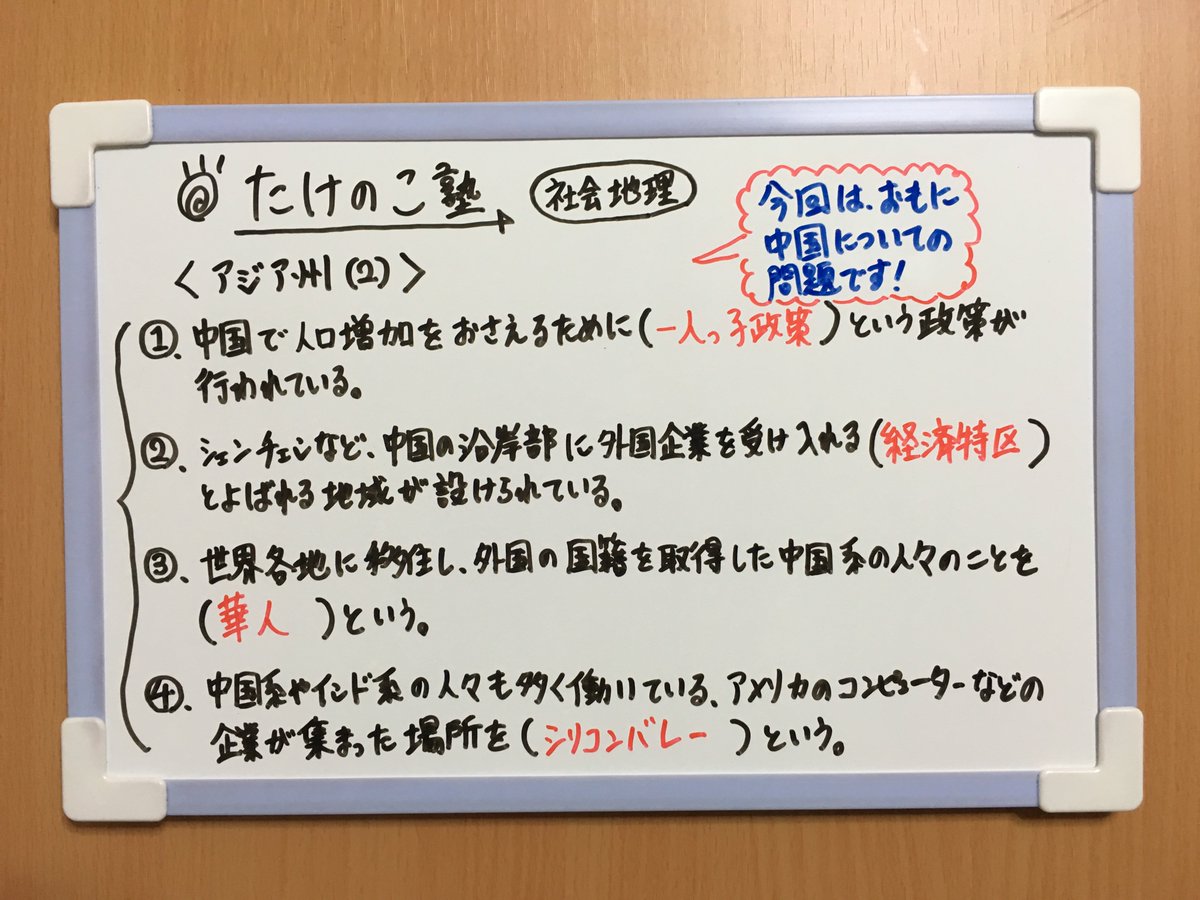 たけのこ塾
社会地理
今回は、おもに
中国についての
問題です!
<アジア州(2)>
①、中国で人口増加をおさえるために(一人っ子政策)という政策が
行われている。
②、シェンチェンなど、中国の沿岸部に外国企業を受け入れる(経済特区)
とよばれる地域が設けられている。
③、世界各地に移住し、外国の国籍を取得した中国系の人々のことを
(華人 )という。
④、中国系やインド系の人々も多く働いている、アメリカのコンピューターなどの
企業が集まった場所を(シリコンバレー )という。